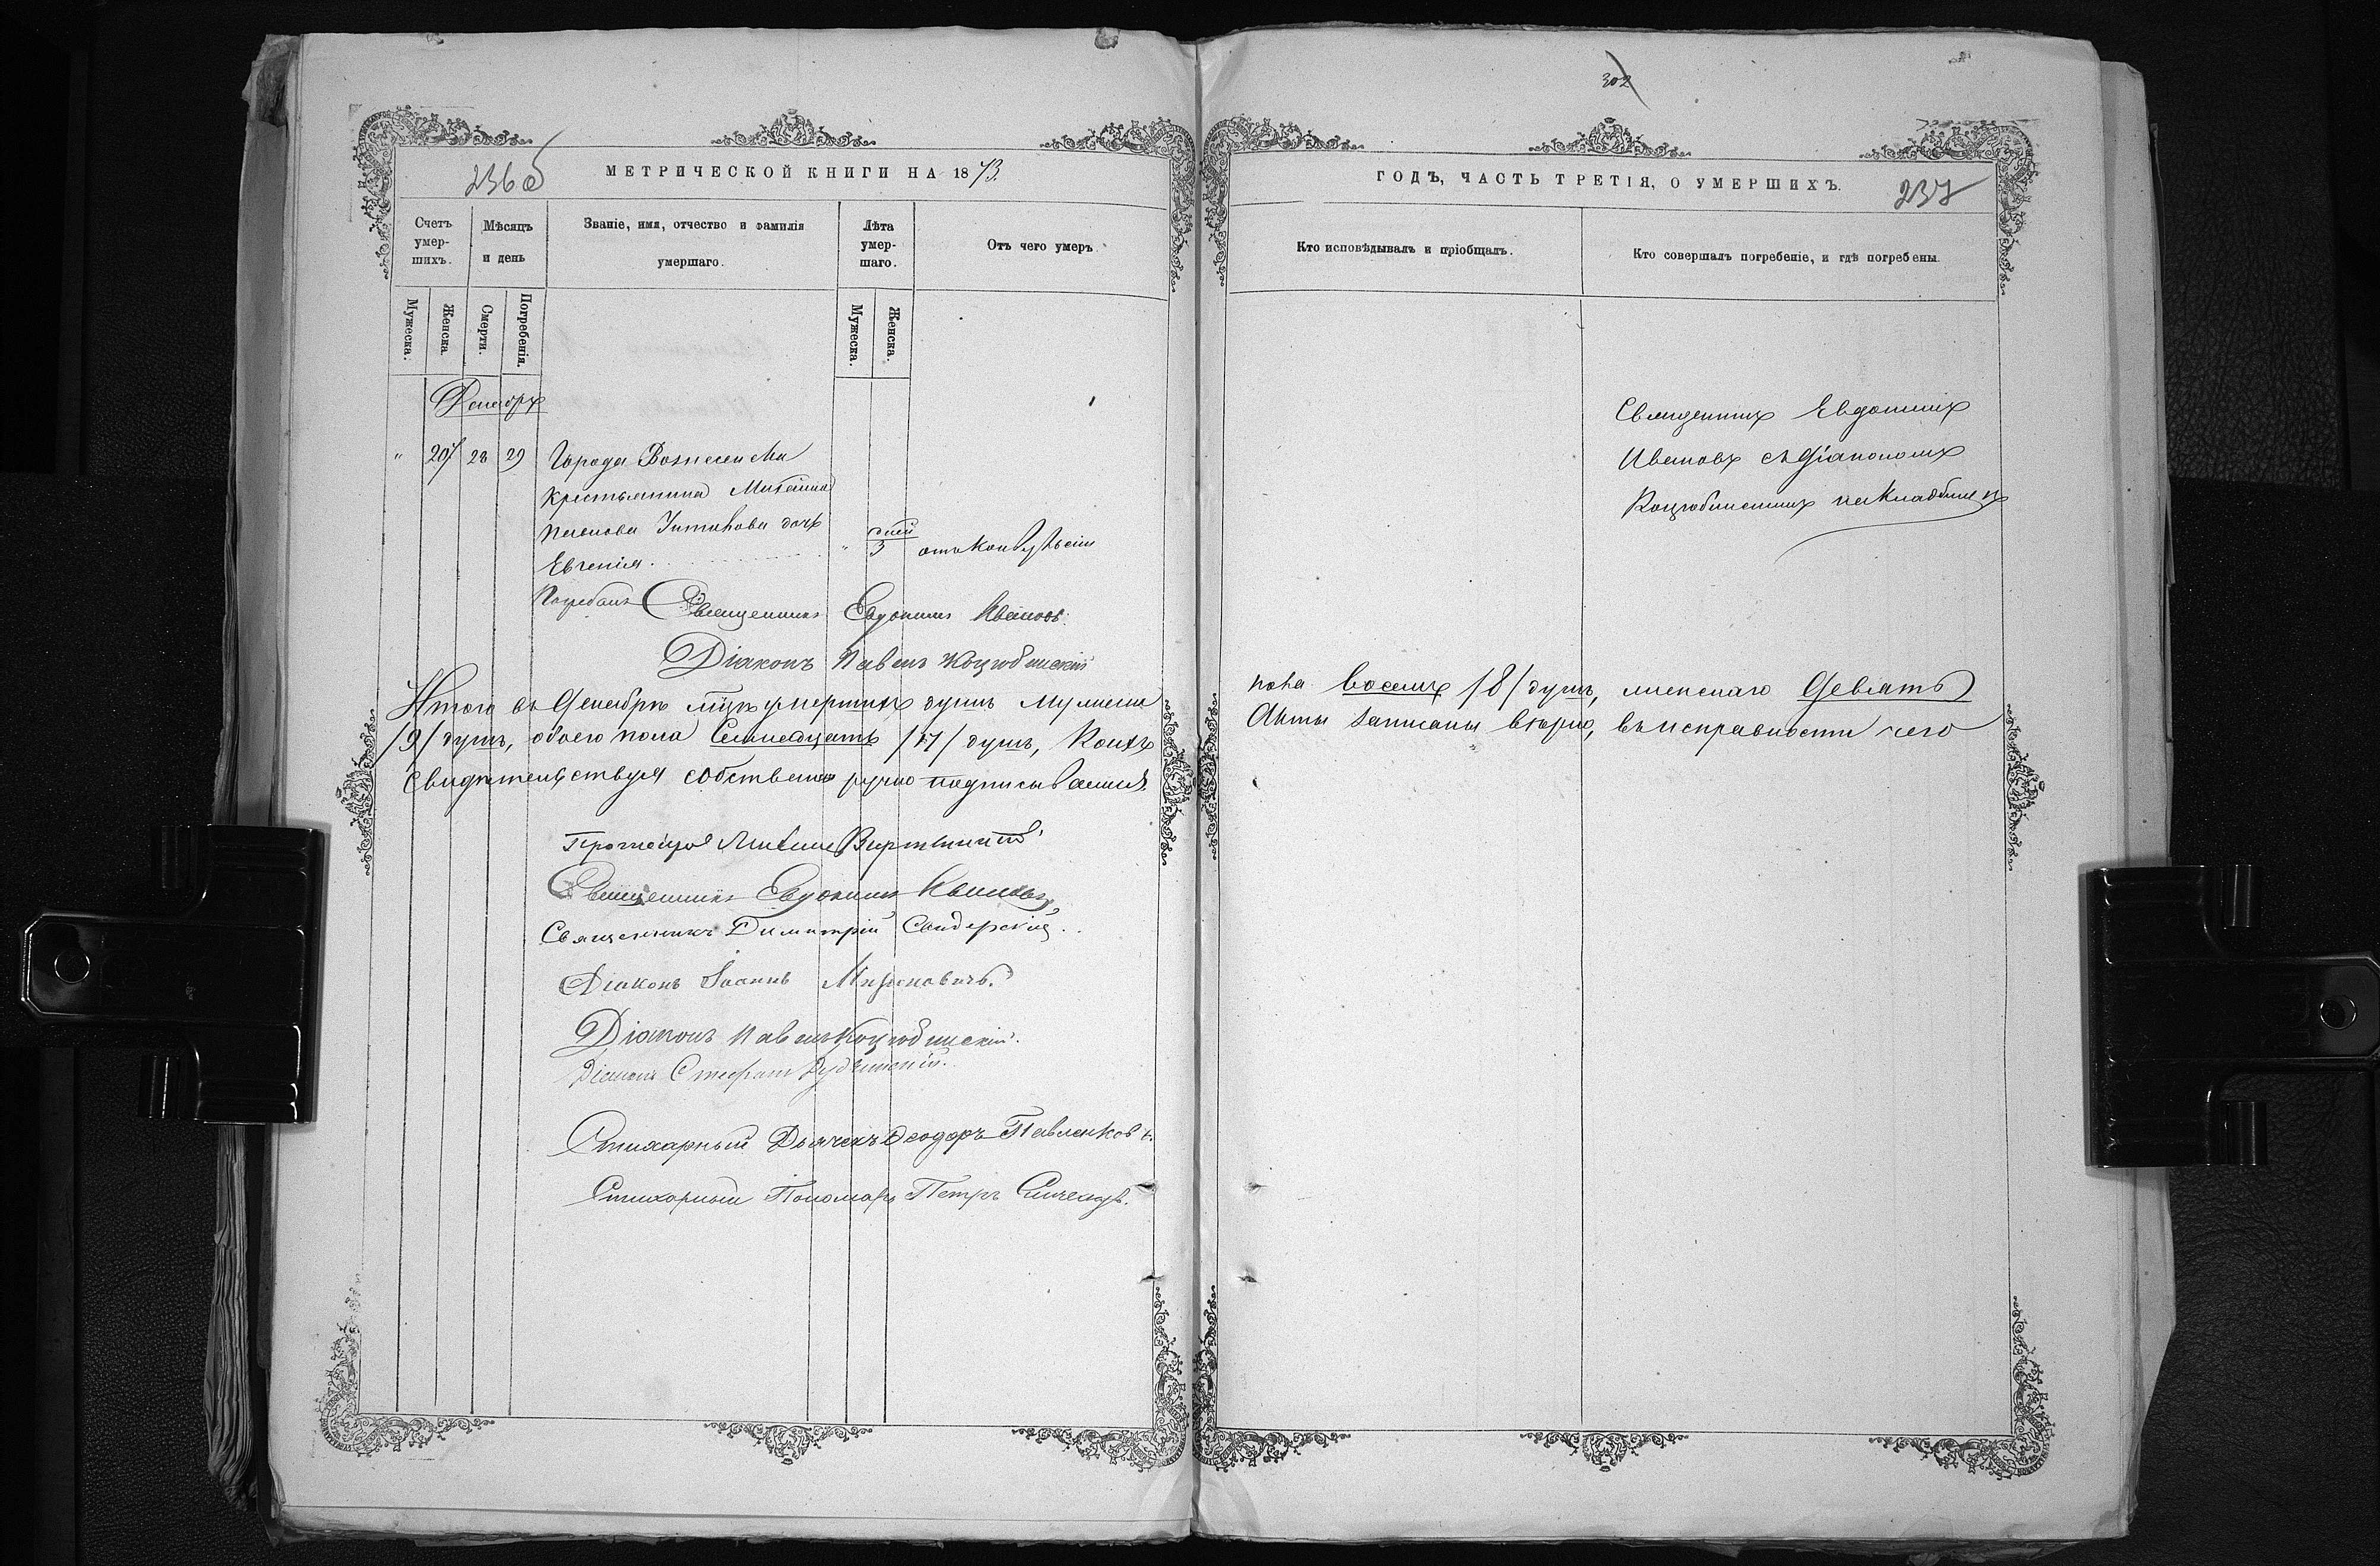 236 об
МЕТРИЧЕСКОЙ КНИГИ НА 1873
Счетъ умер-шихъ.
Мѣсяцъ и день
Званіе, имя, отчество и фамилія умершаго.
Лѣта умер-шаго.
Отъ чего умеръ.
Мужеска.
Женска.
Смерти.
Погребенія.
Мужеска.
Женска.
Декабрь
" 207 28 29 Города Вознесенска
крестьянина Михаила
дочь
Евгенія. " дней 3 отъ конвульсіи
Погребалъ Священникъ Евдокимъ Ивановъ.
Діаконъ Павелъ Коцюбинскій
Итого въ Декабрѣ мцѣ умершихъ душъ мужеска
/9/ душъ, обоего пола Семнадцать /17/ душъ, Коихъ
свидѣтельствуя собственноручно подписываемся
Протоіерей Михаилъ
Священникъ Евдокимъ Ивановъ
Священникъ Димитрій
Діаконъ Іоаннъ
Діаконъ Павелъ Коцюбинскій.
Діаконъ Стефанъ
Стихарный Дьячекъ Ѳеодоръ Павленковъ.
Стихарный Пономарь Петръ
302
ГОДЪ, ЧАСТЬ ТРЕТІЯ, О УМЕРШИХЪ.
237
Кто исповѣдывалъ и пріобщалъ.
Кто совершалъ погребеніе, и гдѣ погребены.
Священникъ Евдокимъ
Ивановъ съ Діакономъ
Коцюбинскимъ на Кладбищѣ
пола восемь /8/ душъ, женскаго Девять
Акты записаны вѣрно, въ исправности чего